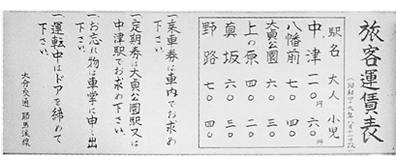 旅客運賃表
駅名 大人 小児
中津 一一〇円 六〇円
八幡前 七〇 四〇
大貞公園 六〇 三〇
上の原 四〇 二〇
真坂 六〇 三〇
野路 七〇 四〇
一、乗車券は車内でお求め
下さい。
一、定期券は大貞公園駅又は
中津駅でお求め下さい。
一、お忘れ物は車掌に申し出
下さい。
一、運転中はドアを締めて
下さい。
大分交通 耶馬渓線